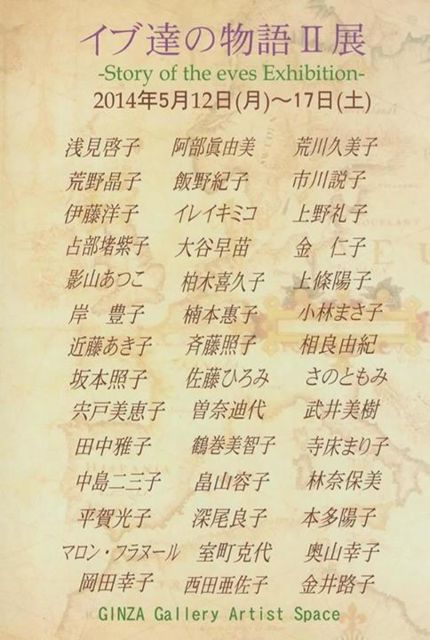 イブ達の物語Ⅱ展
-Story of the eves Exhibition-
2014年5月12日(月)～17日(土)
浅見啓子 阿部眞由美 荒川久美子
荒野晶子 飯野紀子 市川説子
伊藤洋子 イレイキミコ 上野礼子
占部堵紫子 大谷早苗 金 仁子
影山あつこ 柏木喜久子 上條陽子
岸 豊子 楠本惠子 小林まさ子
近藤あき子 斉藤照子 相良由紀
坂本照子 佐藤ひろみ さのともみ
宍戸美恵子 曽奈迪代 武井美樹
田中雅子 鶴巻美智子 寺床まり子
中島二三子 畠山容子 林奈保美
平賀光子 深尾良子 本多陽子
マロン・フラヌール 室町克代 奥山幸子
岡田幸子 西田亜佐子 金井路子
GINZA Gallery Artist Space